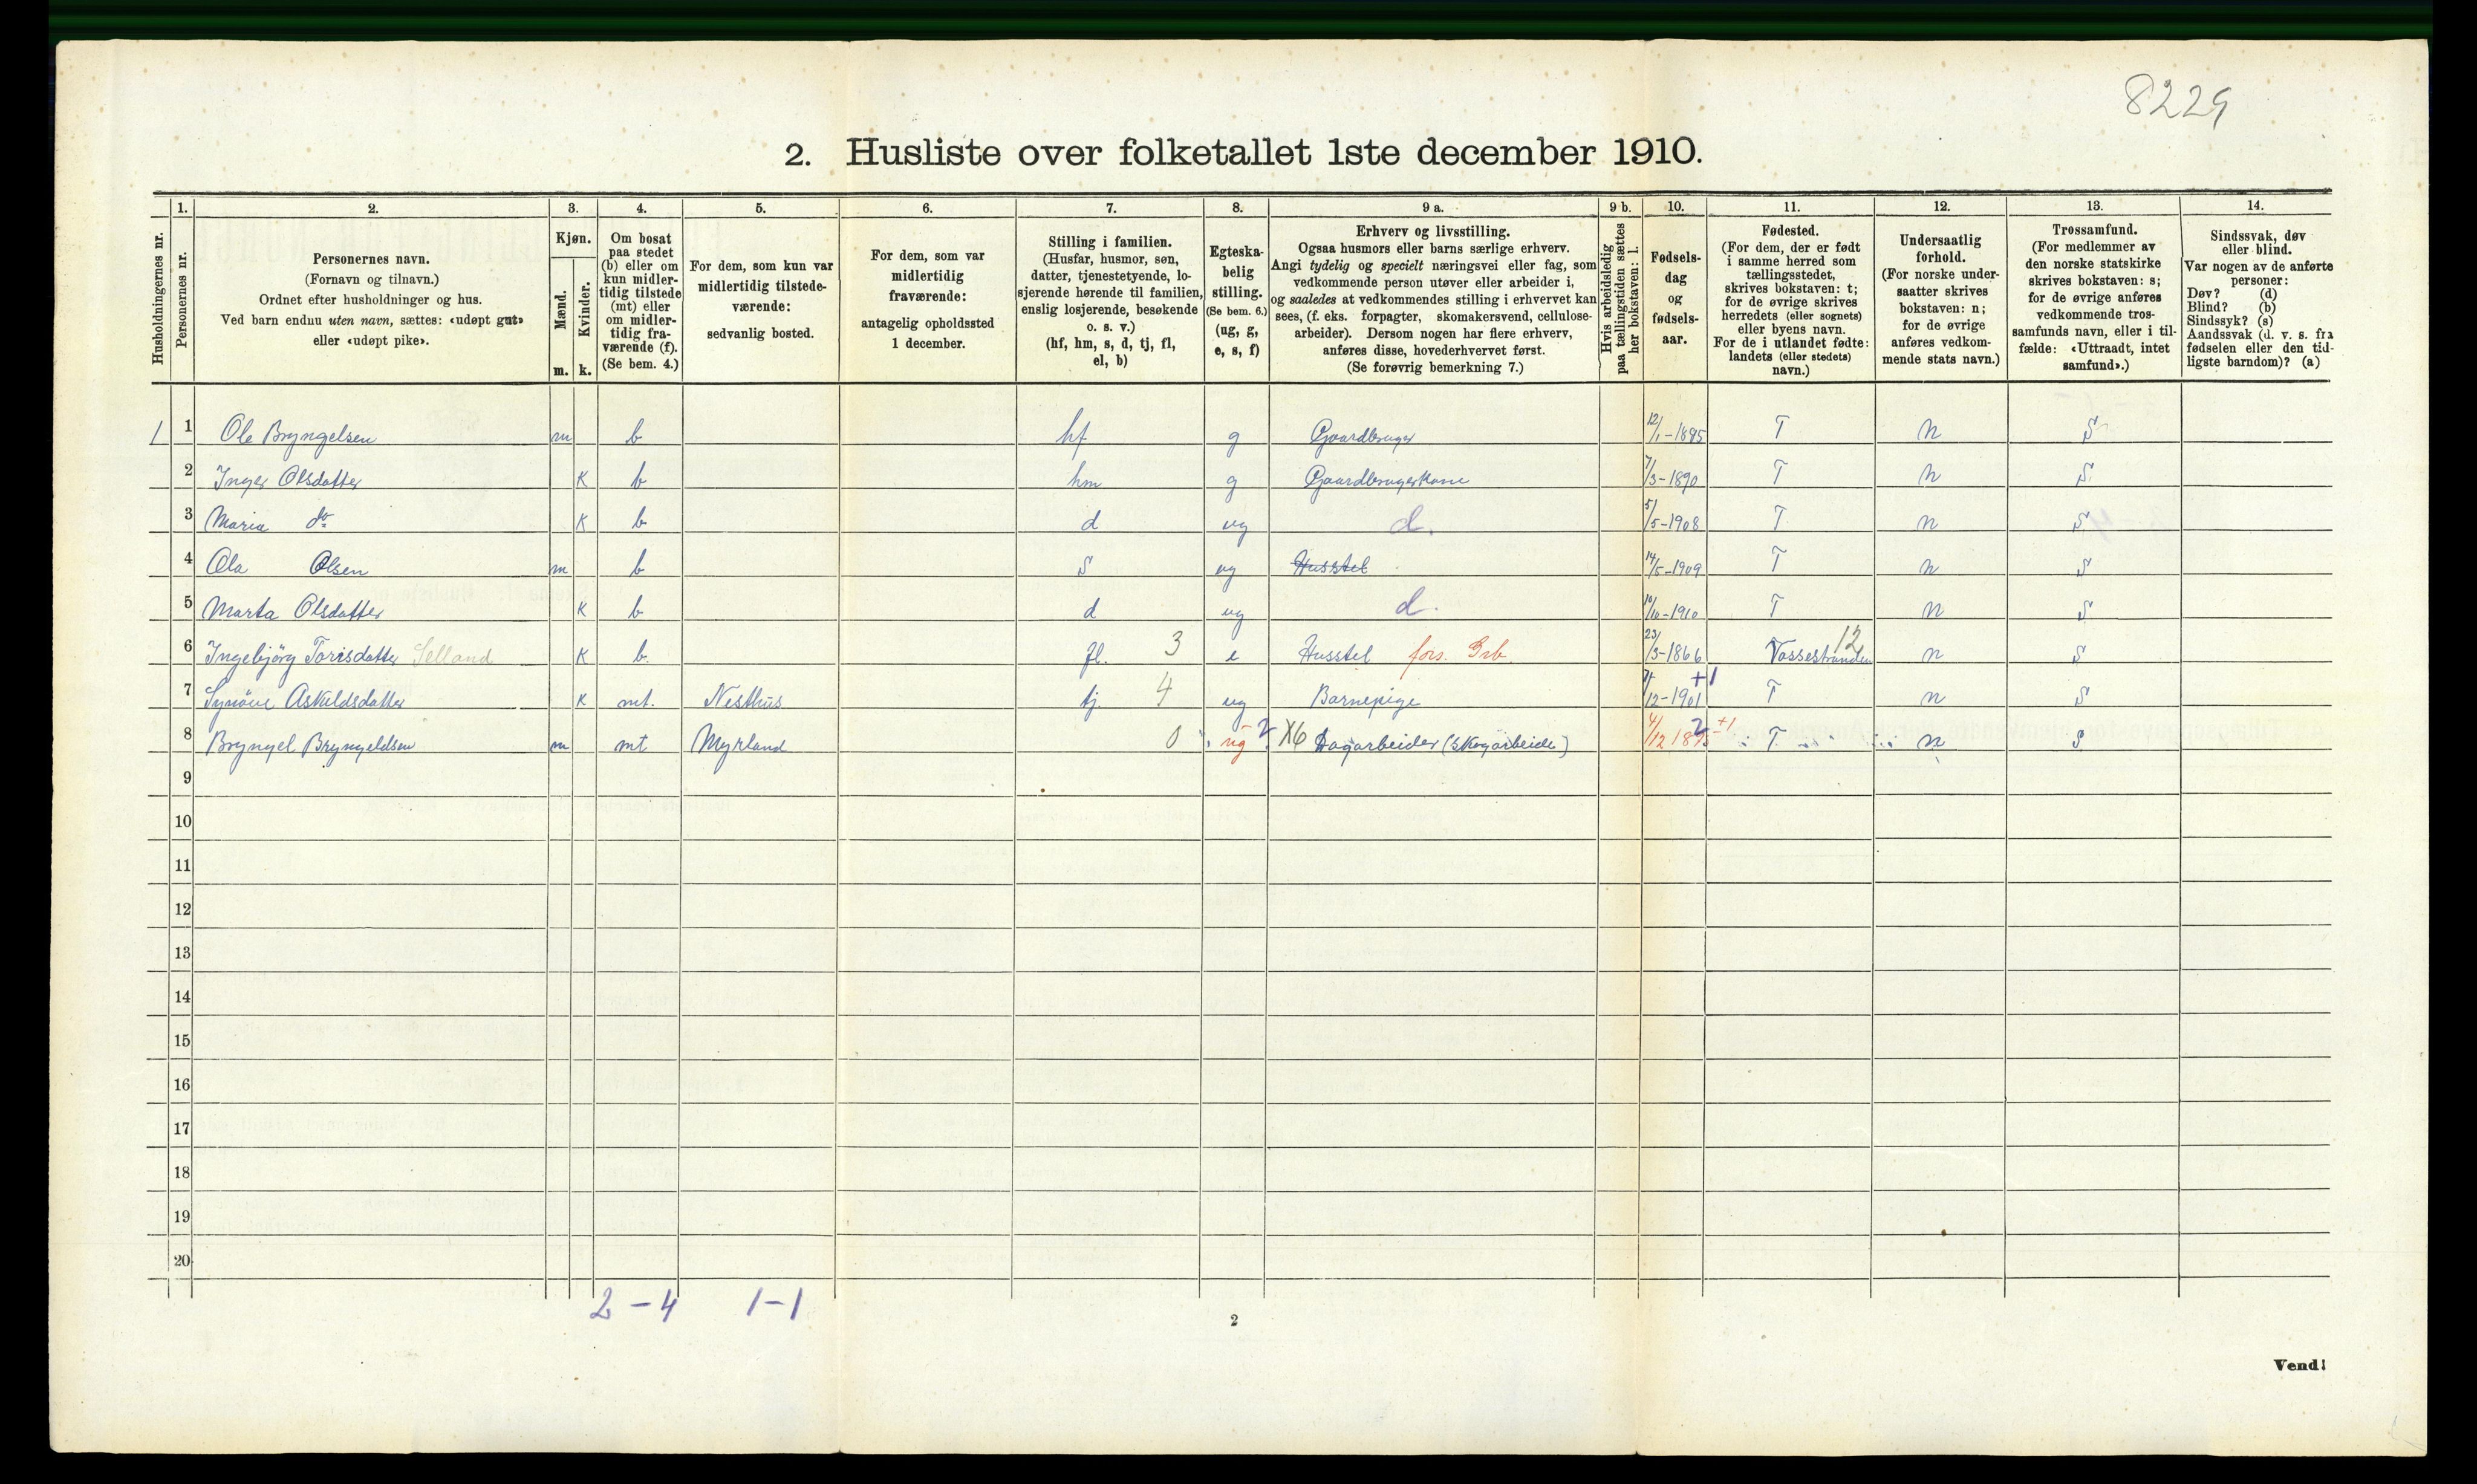 8229
2. Husliste over folketallet 1ste december 1910.
Husholdningernes nr.
1.
Personernes nr.
2.
Personernes navn.
(Fornavn og tilnavn.)
Ordnet efter husholdninger og hus.
Ved barn endnu uten navn, sættes: «udøpt gut»
eller «udøpt pike».
3.
Kjøn.
Mænd.
m.
Kvinder.
k.
4.
Om bosat
paa stedet
(b) eller om
kun midler-
tidig tilstede
(mt) eller
om midler-
tidig fra-
værende (f).
(Se bem. 4.)
5.
For dem, som kun var
midlertidig tilstede-
værende:
sedvanlig bosted.
6.
For dem, som var
midlertidig
fraværende:
antagelig opholdssted
1 december.
7.
Stilling i familien.
(Husfar, husmor, søn,
datter, tjenestetyende, lo-
sjerende hørende til familien,
enslig losjerende, besøkende
o. s. v.)
(hf, hm, s, d, tj, fl,
el, b)
8.
Egteska-
belig
stilling.
(Se bem. 6.)
(ug, g,
e, s, f)
9 a.
Erhverv og livsstilling.
Ogsaa husmors eller barns særlige erhverv.
Angi tydelig og specielt næringsvei eller fag, som
vedkommende person utøver eller arbeider i,
og saaledes at vedkommendes stilling i erhvervet kan
sees, (f. eks. forpagter, skomakersvend, cellulose-
arbeider). Dersom nogen har flere erhverv,
anføres disse, hovederhvervet først.
(Se forøvrig bemerkning 7.)
9 b.
Hvis arbeidsledig
paa tællingstiden sættes
her bokstaven: l.
10.
Fødsels-
dag
og
fødsels-
aar.
11.
Fødested.
(For dem, der er født
i samme herred som
tællingsstedet,
skrives bokstaven: t;
for de øvrige skrives
herredets (eller sognets)
eller byens navn.
For de i utlandet fødte:
landets (eller stedets)
navn.)
12.
Undersaatlig
forhold.
(For norske under-
saatter skrives
bokstaven: n;
for de øvrige
anføres vedkom-
mende stats navn.)
13.
Trossamfund.
(For medlemmer av
den norske statskirke
skrives bokstaven: s;
for de øvrige anføres
vedkommende tros-
samfunds navn, eller i til-
fælde: «Uttraadt, intet
samfund».)
14.
Sindssvak, døv
eller blind.
Var nogen av de anførte
personer:
Døv? (d)
Blind? (b)
Sindssyk? (s)
Aandssvak (d. v. s. fra
fødselen eller den tid-
ligste barndom)? (a)
1 1 Ole Bryngelsen m b hf g Gaardbruger 12/1-1885 T n S
2 Inger Olsdatter K b hm g Gaardbrugerkone 7/3-1890 T n S
3 Maria do K b d ug d. 5/5-1908 T n S
4 Ola Olsen m b S ug Husstel 14/5-1909 T n S
5 Marta Olsdatter K b d ug d. 10/10-1910 T n S
6 Ingebjörg Torisdatter Selland K b fl. 3 e Husstel fors. Grb 23/3-1866 Vossestranden 12 n S
7 Synöve Askildsdatter K mt. Nesthus tj. 4 ug Barnepige 12-1901 +1 T n S
8 Bryngel Bryngeldsen m mt Myrland 0 ug 2 X6 Dagarbeider (skogarbeide) 4/12 +1 T n S
9
10
11
12
13
14
15
16
17
18
19
20
2 - 4 1 - 1
2
Vend!